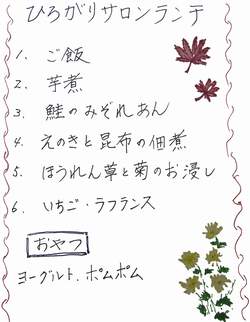 ひろがりサロンランチ
1. ご飯
2. 芋煮
3. 鮭のみぞれあん
4. えのきと昆布の佃煮
5. ほうれん草と菊のお浸し
6. いちご・ラフランス
おやつ
ヨーグルト、ポムポム